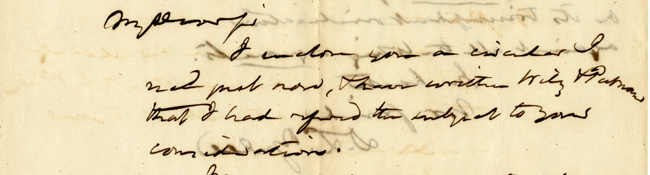 My Dear Sir
I enclose you a circular I
rec'd just now, & have written Wily & Putnam
that I had referred the subject to your
consideration.